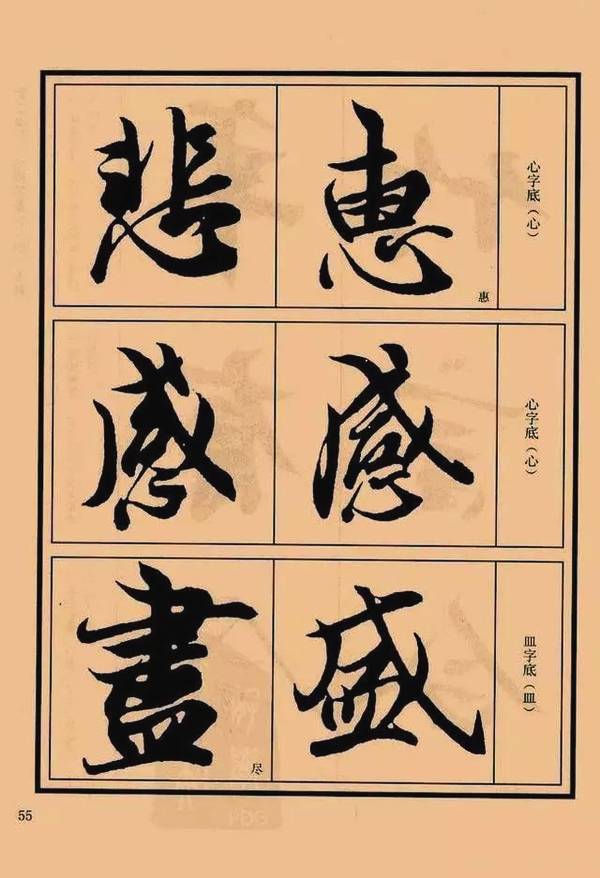 心字底（心）
恵
惠
悲
心字底（心）
感
感
皿字底（皿）
盛
盡
尽
55